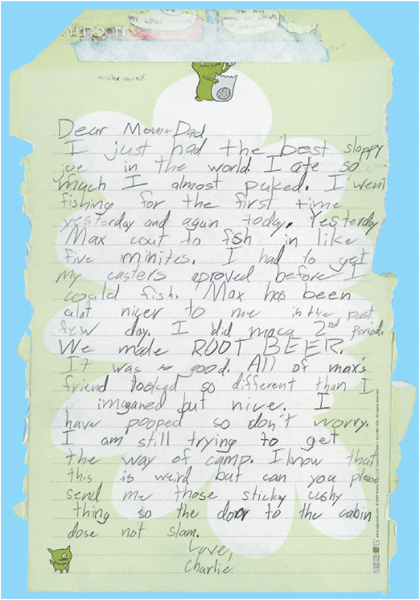 Dear Mom + Dad,
I just had the best sloppy
joe in the world. I ate so
much I almost puked. I went
fishing for the first time
yesterday and again today. Yesterday
Max cout to fish in like
five minites. I had to get
my casters aproved before I
could fish. Max has been
alot nicer to me in the past
few day. I did maca 2nd period.
We made ROOT BEER.
It was so good. All of max's
friend looked so different than I
imaganed but nive. I
have pooped so don't worry.
I am still trying to get
the way of camp. I know that
this is weird but can you please
send me those sticky cushy
thing so the door to the cabin
dose not slam.
Love,
Charlie